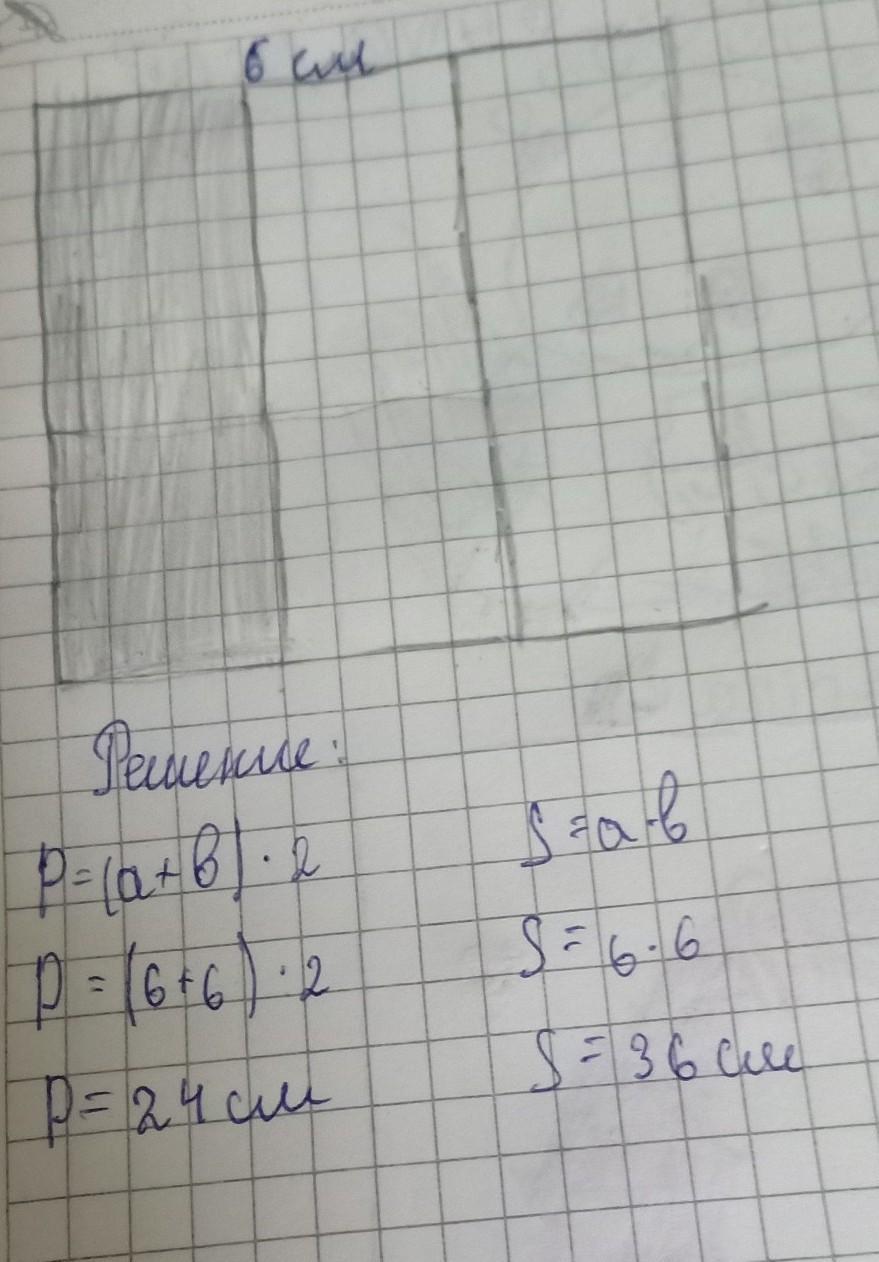 6 см
Решение:
P=(a+b)·2
P=(6+6)·2
P=24 см
S=a·b
S=6·6
S=36 см